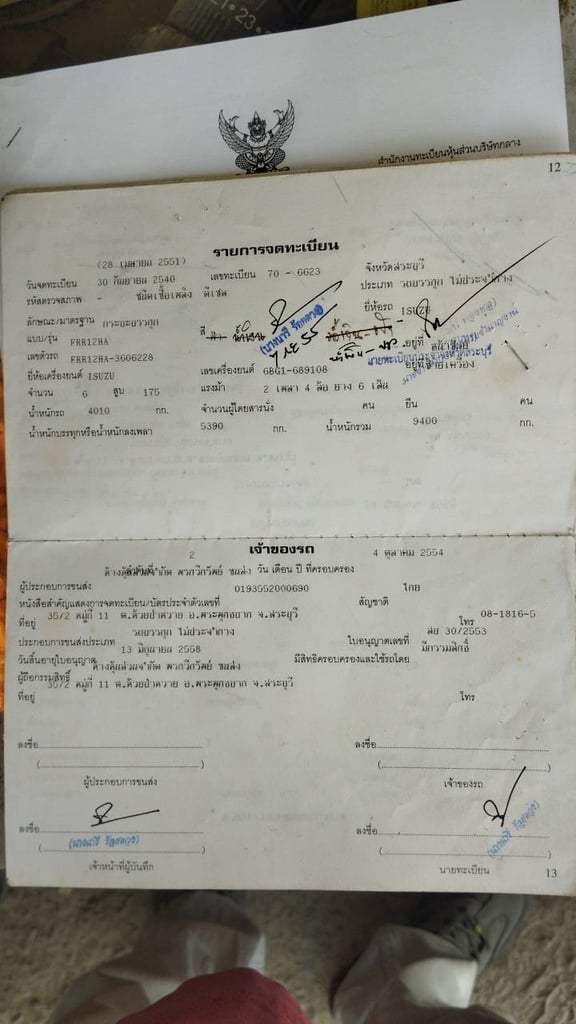 สำนักงานทะเบียนหุ้นส่วนบริษัทกลาง
12
รายการจดทะเบียน
(28 เมษายน 2551)
วันจดทะเบียน 30 กันยายน 2540 เลขทะเบียน 70 - 6623 จังหวัดสระบุรี
รหัสตรวจสภาพ - ชนิดเชื้อเพลิง ดีเซล ประเภท รถบรรทุก ไม่ประจำทาง
ลักษณะ/มาตรฐาน กระบะบรรทุก สี ยี่ห้อรถ ISUZU
แบบ/รุ่น FRR12HA
เลขตัวรถ FRR12HA-3606228 อยู่ที่
ยี่ห้อเครื่องยนต์ ISUZU เลขเครื่องยนต์ 6BG1-689108 อยู่ที่
จำนวน 6 สูบ 175 แรงม้า 2 เพลา 4 ล้อ ยาง 6 เส้น
น้ำหนักรถ 4010 กก. จำนวนผู้โดยสารนั่ง คน ยืน คน
น้ำหนักบรรทุกหรือน้ำหนักลงเพลา 5390 กก. น้ำหนักรวม 9400 กก.
นายทะเบียนประจำจังหวัดสระบุรี
เจ้าของรถ
2 4 ตุลาคม 2554
วัน เดือน ปี ที่ครอบครอง
ผู้ประกอบการขนส่ง
0193552000690 ไทย
หนังสือสำคัญแสดงการจดทะเบียน/บัตรประจำตัวเลขที่ สัญชาติ
ที่อยู่ 35/2 หมู่ที่ 11 ต.ห้วยป่าหวาย อ.พระพุทธบาท จ.สระบุรี โทร 08-1816-5
ประกอบการขนส่งประเภท รถบรรทุก ไม่ประจำทาง ใบอนุญาตเลขที่ สบ 30/2553
วันสิ้นอายุใบอนุญาต 13 มิถุนายน 2558 มีสิทธิครอบครองและใช้รถโดย
ผู้ถือกรรมสิทธิ์
ที่อยู่ 35/2 หมู่ที่ 11 ต.ห้วยป่าหวาย อ.พระพุทธบาท จ.สระบุรี โทร
ลงชื่อ ลงชื่อ
ผู้ประกอบการขนส่ง เจ้าของรถ
ลงชื่อ ลงชื่อ
เจ้าหน้าที่ผู้บันทึก นายทะเบียน
13